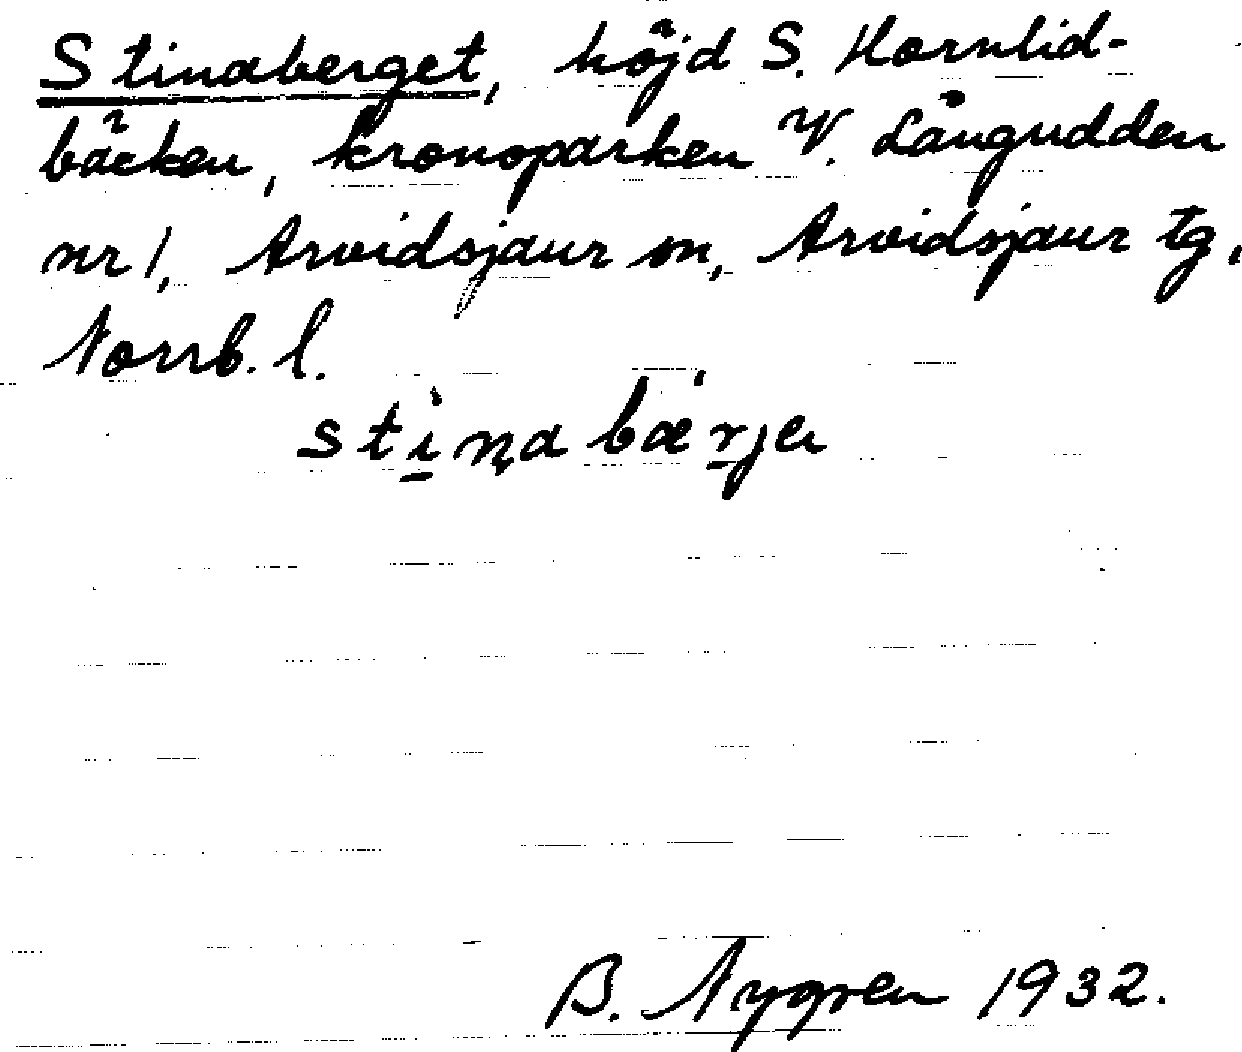 Stinaberget, höjd S. Hornlid-
bäcken, kronoparken V. Långudden
nr 1, Arvidsjaur sn, Arvidsjaur tg,
Norrb. l.
stinabærjeı
B. Nygren 1932.